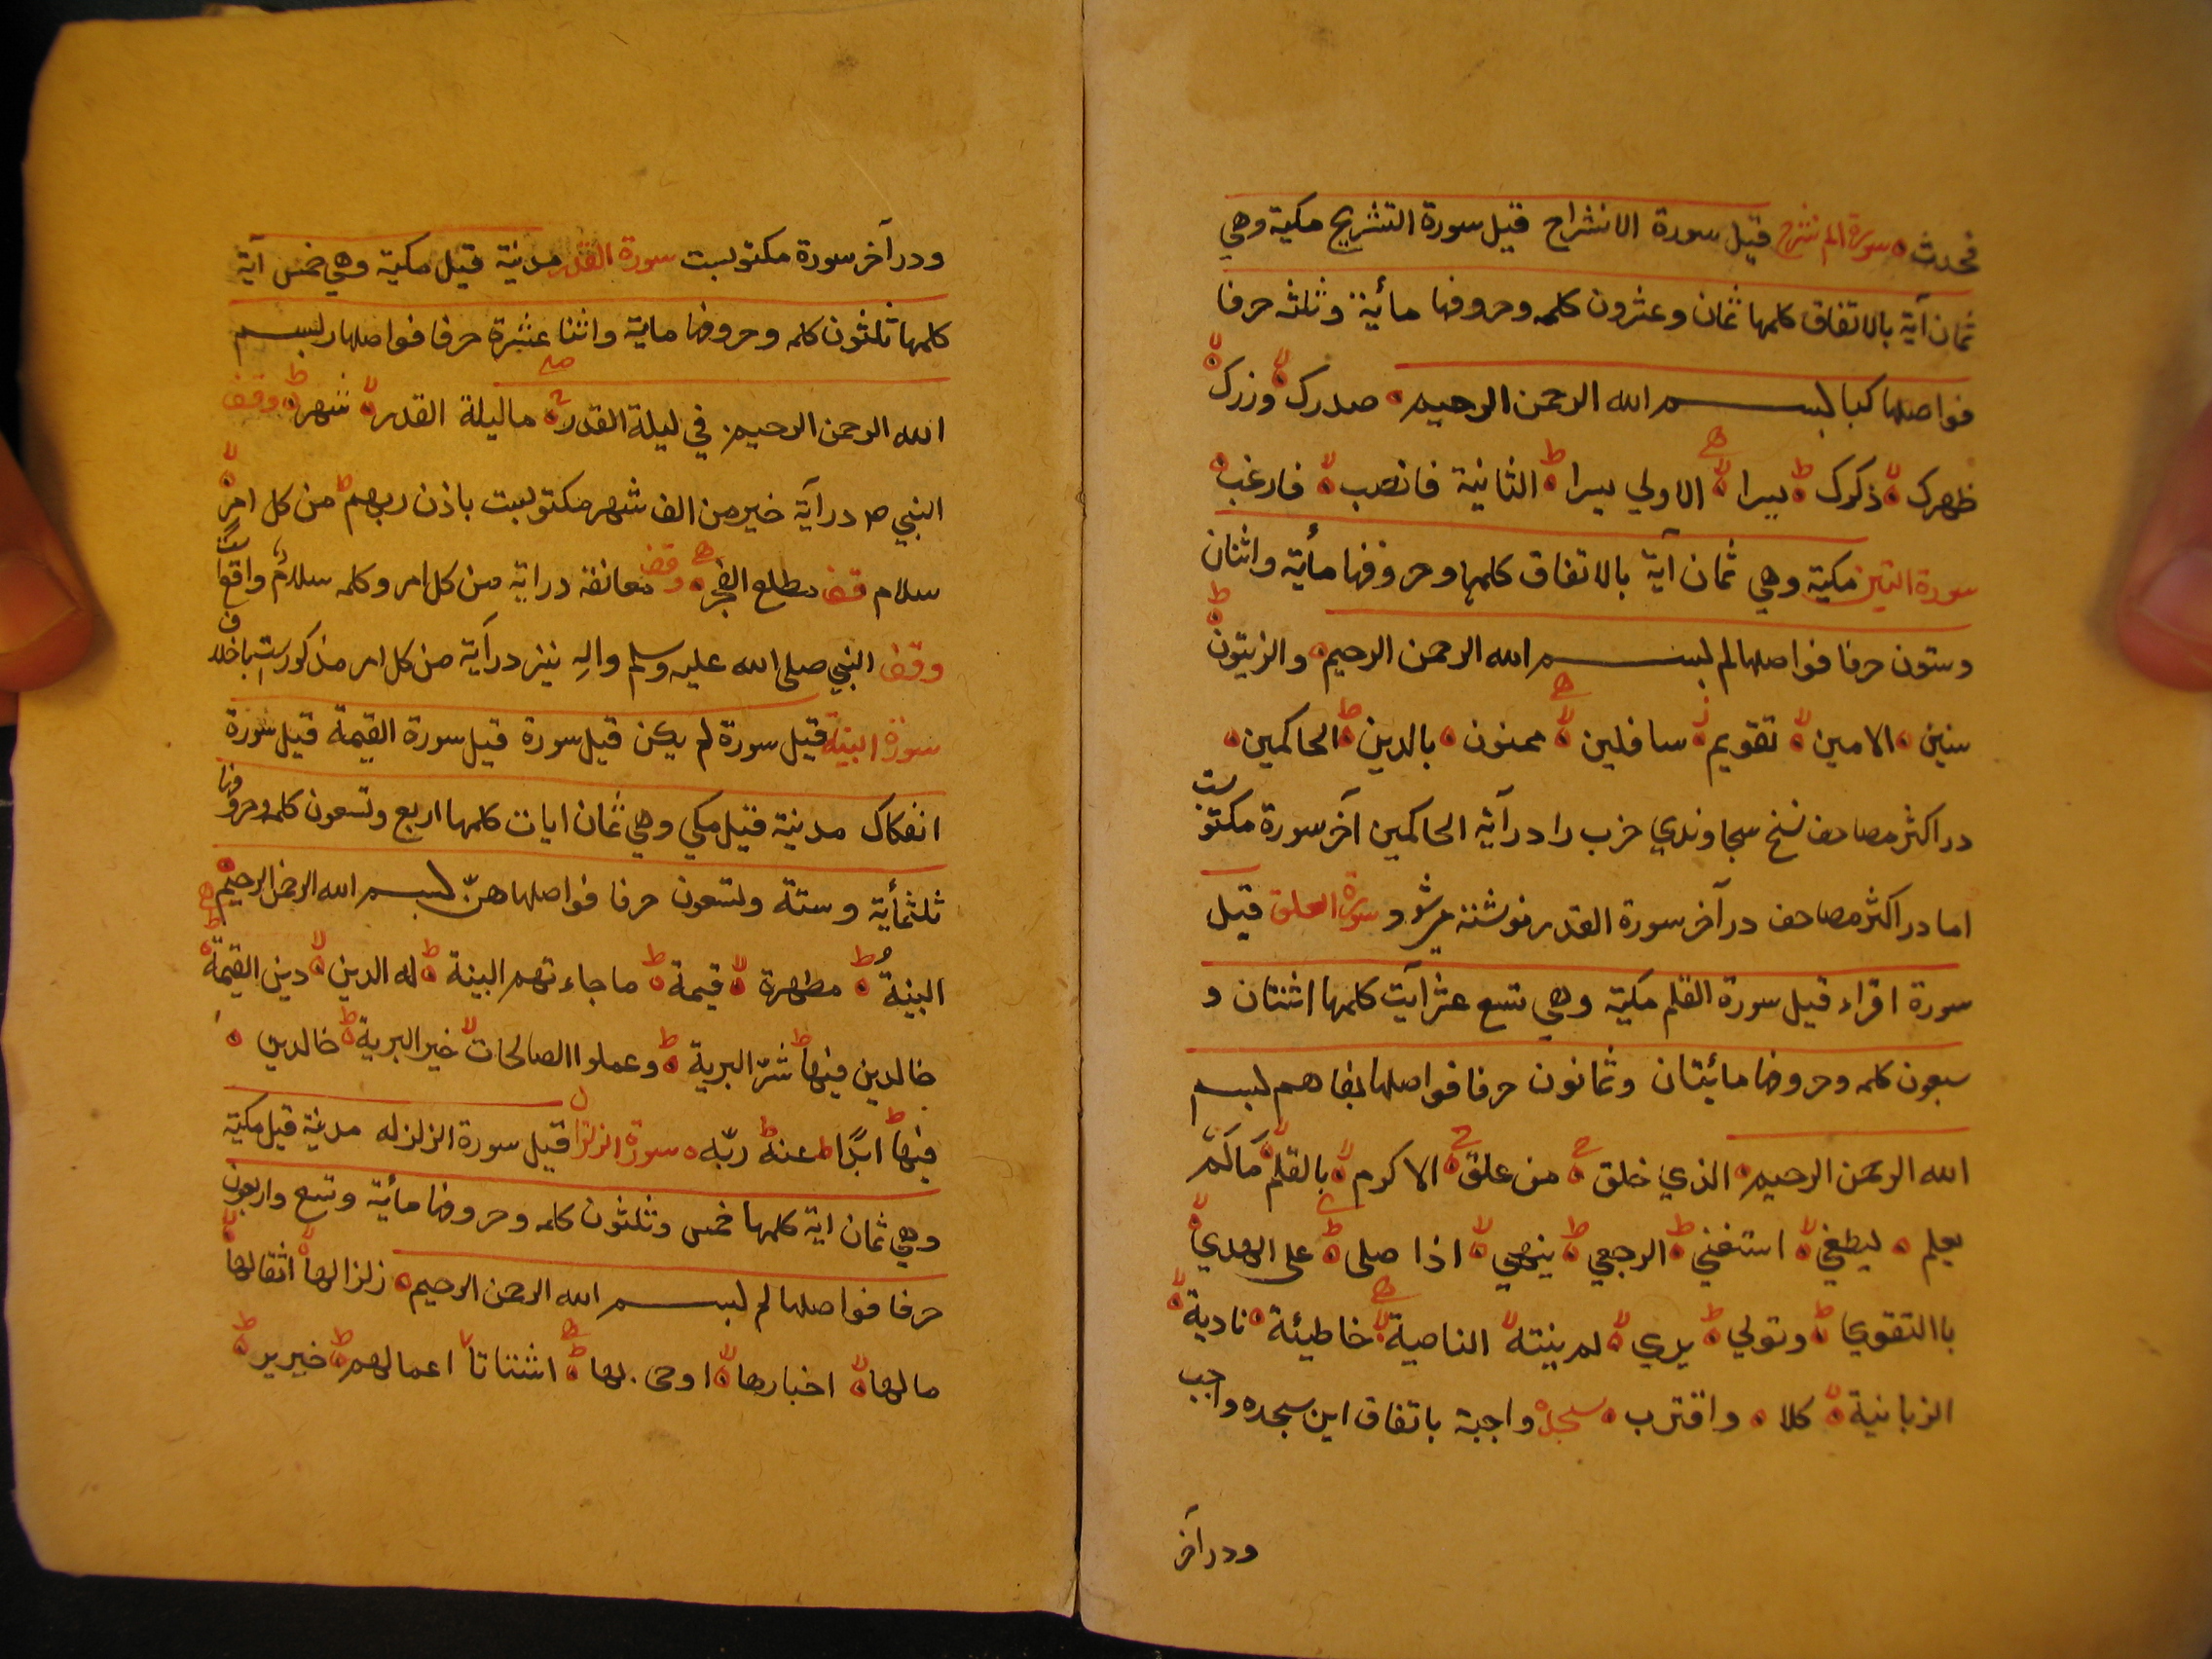 فحدث سورة الم نشرح قيل سورة الانشراح قيل سورة التشريح مكية وهي
ثمان آية بالاتفاق كلمها ثمان وعشرون كلمه وحروفها مأية وثلثه حرفا
فواصلها كبا بسم الله الرحمن الرحيم صدرك لا وزرك لا
ظهرك لا ذكرك ط يسرا لا الاولي يسرا ط الثانية فانصب لا فارغب
سورة التين مكية وهي ثمان آية بالاتفاق كلمها وحروفها مأية واثنان
وستون حرفا فواصلها لم بسم الله الرحمن الرحيم والزيتون ط
سنين الامين لا تقويم ز سافلين لا ممنون بالدين ط الحاكمين
در اكثر مصاحف نسخ سجاوندي حزب را در آية الحاكمين آخر سورة مكتوبست
اما در اكثر مصاحف در آخر سورة القدر نوشته و سورة العلق قيل
سورة اقراء قيل سورة القلم مكية وهي تسع عشر آيت كلمها اثنتان و
سبعون كلمه وحروفها مائتان وثمانون حرفا فواصلها بسم
الله الرحمن الرحيم الذي خلق ج من علق ج الاكرم لا بالقلم لا مالم
يعلم ليطغي لا استغني ط الرجعي ط ينهي لا اذا صلى ط على الهدي لا
باالتقوي ط وتولي ط يري لا لم ينته لا الناصية لا خاطئة نادية لا
الزبانية لا كلا واقترب سجدة واجبة باتفاق اين سجده واجب
ودر آخر
ودر آخر سورة مكتوبست سورة القدر مدنية قيل مكية وهي خمس آية
كلمها ثلثون كلمه وحروفها ماية واثنا عشرة حرفا فواصلها ر بسم
الله الرحمن الرحيم في ليلة القدر ماليلة القدر لا شهر ط وقف
النبي ص در آية خير من الف شهر مكتوبست باذن ربهم ط من كل امر لا
سلام قف مطلع الفجر وقف معانقه در اية من كل امر وكلمه سلام واقعست
وقف النبي صلى الله عليه وسلم واله نيز در آية من كل امر مذكورست باخلاف
سورة البينة قيل سورة لم يكن قيل سورة قيل سورة القيمة قيل سورة
انفكاك مدنية قيل مكي وهي ثمان ايات كلمها اربع وتسعون كلمه وحروفها
ثلثمأية وستة وتسعون حرفا فواصلها هنّ بسم الله الرحمن الرحيم
البينةُ ط مطهرة لا قيمة ط ما جاءتهم البينة ط له الدين لا دين القيمة ط
خالدين فيها ط شرّ البرية ط وعملوا الصالحات لا خير البرية ط خالدين
فيها ط ابدًا ط عنه ط ربّه سورة الزلزال قيل سورة الزلزله مدنية قيل مكية
وهي ثمان اية كلمها خمس وثلثون كلمه وحروفها مأية وتسع واربعون
حرفا فواصلها لم بسم الله الرحمن الرحيم زلزالها لا اثقالها لا
مالها لا اخبارها لا اوحى لها ط اشتاتا لا اعمالهم ط خيريره ط